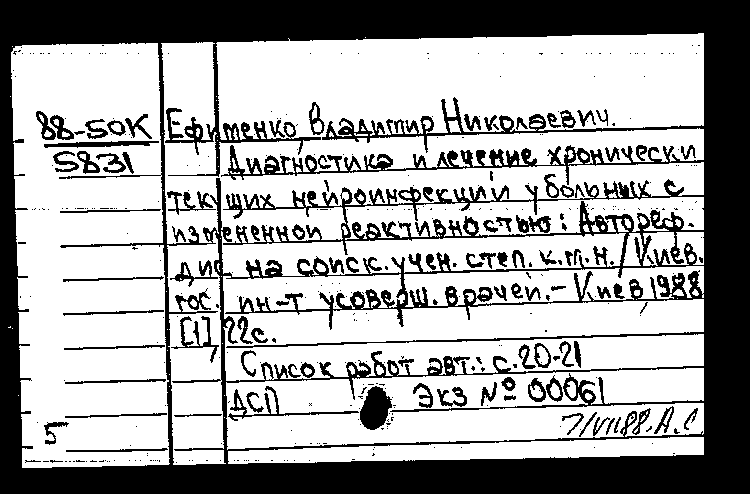 88-50К Ефименко, Владимир Николаевич.
5831 Диагностика и лечение хронически
текущих нейроинфекций у больных с
измененной реактивностью: Автореф.
дис. на соиск. учен. степ. к.м.н. / Киев.
гос. ин-т усоверш. врачей. - Киев, 1988
[1], 22с.
Список работ авт.: с. 20-21
ДСП Экз № 00061
5 7/VII88. А.С.